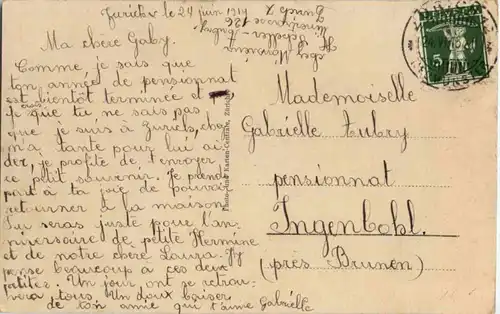 Zurich le 24 juin 1914
Ma chère Gaby.
Comme je sais que
ton année de pensionnat
est bientôt terminée et
je que tu ne sais pas
que je suis à Zurich, chez
m'a tante pour lui ai-
der, je profite de t'envoyer
ce petit souvenir. Je prend
part à ta joie de pouvoir
retourner à la maison
Tu seras juste pour l'an
niversaire de petite Hermine
et de notre chere Louisa. J'y
pense beaucoup a ces deux
petites. Un jour ont se retrou-
vera tous. Un doux baiser
de ton amie qui t'aime Gabrielle
Zurich
136
Photo-Karten-Centrale, Zürich
Mademoiselle
Gabrielle Aubry
pensionnat
Ingenbohl.
(près Brunen)
5